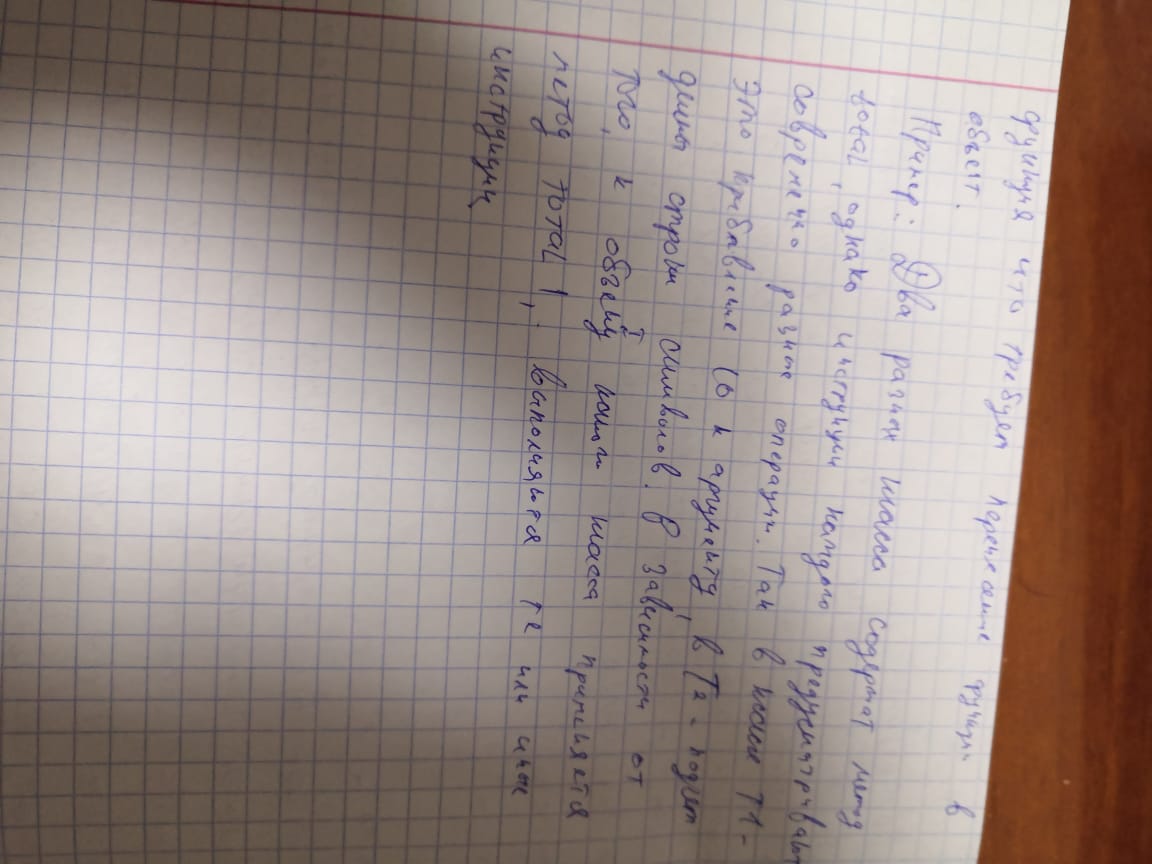 функция что требует перенесение функции в
объект.
Пример: Два разных класса содержат метод
total, однако инструкции каждого предусматривают
совремечно разные операции. Так в классе T1-
это прибавление 10 к аргументу, в T2 - подчет
длины строки символов. В зависимости от
того, к объекту какого класса применяется
метод total, выполняются те или иные
инструкции